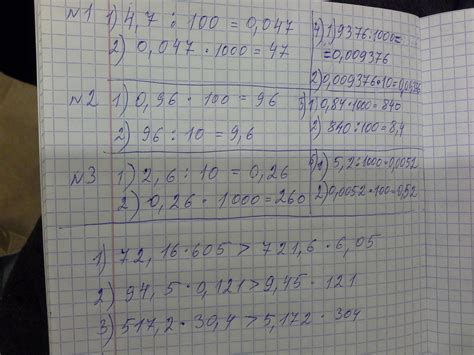 №1 1) 4,7 : 100 = 0,047
2) 0,047 · 1000 = 47
№2 1) 0,96 · 100 = 96
2) 96 : 10 = 9,6
№3 1) 2,6 : 10 = 0,26
2) 0,26 · 1000 = 260
4) 1) 9376 · 1000 =
= 0,009376
2) 0,009376 · 10 =
1) 0,84 · 1000 = 840
2) 840 : 100 = 8,4
1) 5,2 : 1000 = 0,0052
2) 0,0052 · 100 = 0,52
1) 72,16 · 605 > 721,6 · 6,05
2) 94,5 · 0,121 > 9,45 · 121
3) 517,2 · 30,4 > 5,172 · 304